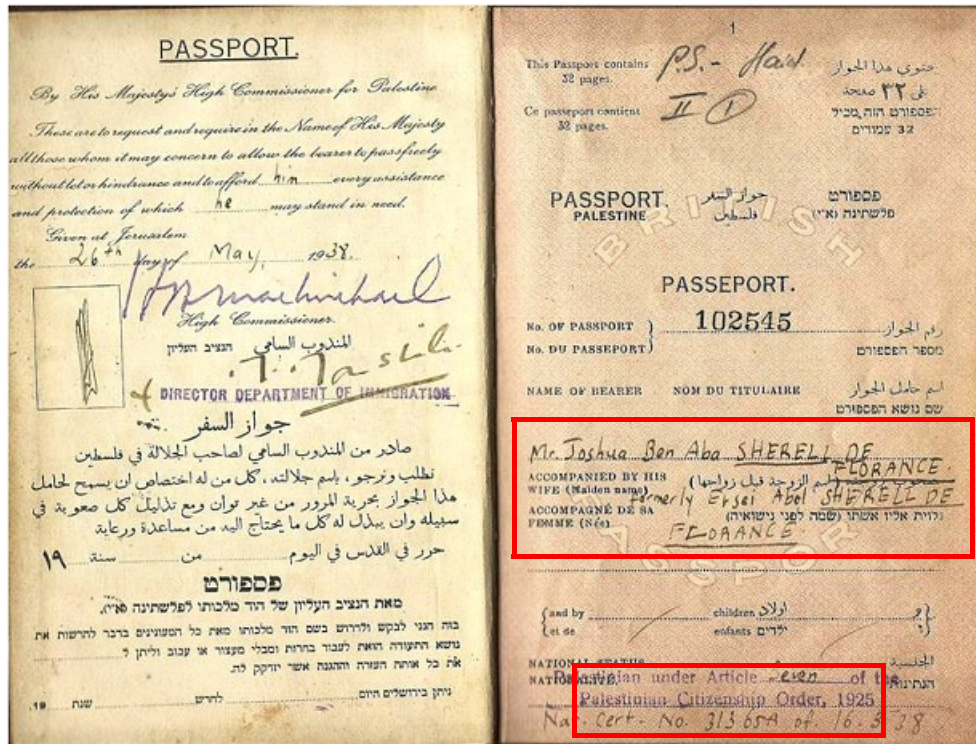 PASSPORT.
By His Majesty's High Commissioner for Palestine
These are to request and require in the Name of His Majesty
all those whom it may concern to allow the bearer to pass freely
without let or hindrance and to afford him every assistance
and protection of which he may stand in need.
Given at Jerusalem
the 26th day of May, 1938.
High Commissioner.
المندوب السامي הנציב העליון
DIRECTOR DEPARTMENT OF IMMIGRATION
جواز السفر
صادر من المندوب السامي لصاحب الجلالة في فلسطين
نطلب ونرجو، باسم جلالته، كل من له اختصاص ان يسمح لحامل
هذا الجواز بحرية المرور من غير توان ومع تذليل كل صعوبة في
سبيله وان يبذل له كل ما يحتاج اليه من مساعدة ورعاية
حرر في القدس في اليوم من سنة ١٩
פספורט
מאת הנציב העליון של הוד מלכותו לפלשתינה (א"י).
בזה הנני לבקש ולדרוש בשם הוד מלכותו מאת כל המעונינים בדבר להרשות את
נושא התעודה הזאת לעבור בחרות ומבלי מעצור או עכוב וליתן ל
את כל אותה העזרה וההגנה אשר יזדקק לה.
ניתן בירושלים היום לחדש שנת 19.
1
This Passport contains
32 pages.
P.S. -
يحتوي هذا الجواز
على ٣٢ صفحة
Ce passeport contient
32 pages.
II I
הפספורט הזה מכיל
32 עמודים
PASSPORT. جواز السفر פספורט
PALESTINE فلسطين פלשתינה (א"י)
BRITISH
PASSEPORT.
No. OF PASSPORT
No. DU PASSEPORT
102545
رقم الجواز
מספר הפספורט
NAME OF BEARER NOM DU TITULAIRE اسم حامل الجواز
שם נושא הפספורט
Mr. Joshua Ben Aba SHERELL DE
FLORANCE.
ACCOMPANIED BY HIS
WIFE (Maiden name)
(اسم الزوجة قبل زواجها)
formerly Ersei Abel SHERELL DE
ACCOMPAGNÉ DE SA
FEMME (Née)
(לוית אליו אשתו (שמה לפני נישואיה
FLORANCE
PASSPORT
and by children اولاد
et de enfants ילדים
NATIONAL STATUS
NATIONALITÉ
الجنسية
הנתינות
Palestinian under Article Seven of the
Palestinian Citizenship Order, 1925
Nat. Cert. No. 31365A of 16.3.38